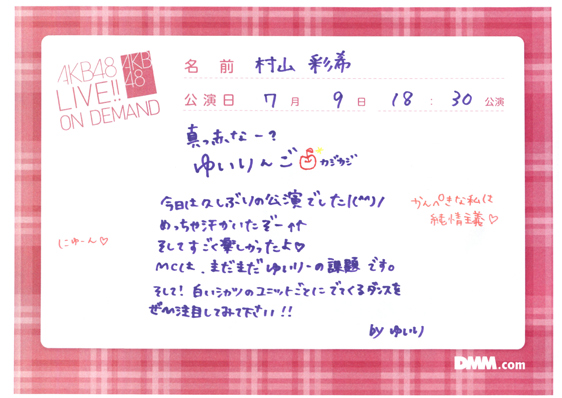 AKB48
LIVE!!
ON DEMAND
AKB
48
名前 村山 彩希
公演日 7月 9日 18:30 公演
真っ赤なー?
ゆいりんご カジカジ
今日は久しぶりの公演でした!(^^)!
めっちゃ汗かいたぞー↑↑
そしてすごく楽しかったよ♡
MCは、まだまだゆいりーの課題です。
そして!白いシャツのユニットごとにでてくるダンスを
ぜひ注目してみて下さい!!
by ゆいり
にゅーん♡
かんぺきな私は
純情主義♡
DMM.com